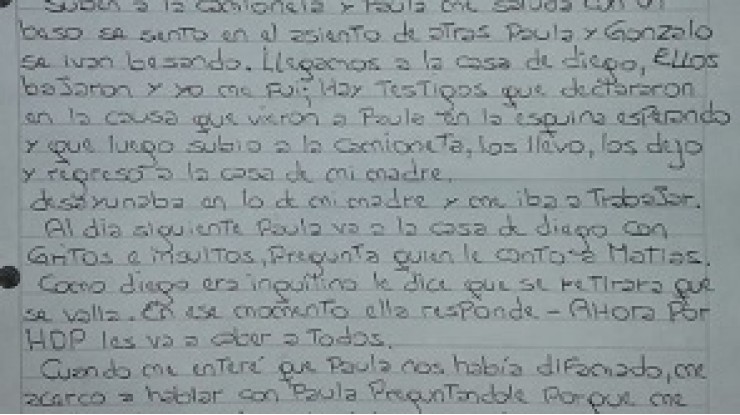 suben a la camioneta y Paula me saluda con un
beso se sento en el asiento de atras Paula y Gonzalo
se ivan besando. Llegamos a la casa de diego, Ellos
bajaron y yo me fui; Hay Testigos que declararon
en la causa que vieron a Paula en la esquina esperando
y que luego subio a la camioneta, los llevo, los dejo
y regreso a la casa de mi madre.
desayunaba en lo de mi madre y me iba a Trabajar.
Al dia siguiente Paula va a la casa de diego con
Gritos e insultos, Pregunta quien le conto a Matias.
Como diego era inquilino le dice que se retirara que
se valla. En ese momento ella responde - AHora Por
HDP les va a caber a Todos.
Cuando me enteré que Paula nos había difamado, me
acerco a hablar con Paula Preguntandole Porque me